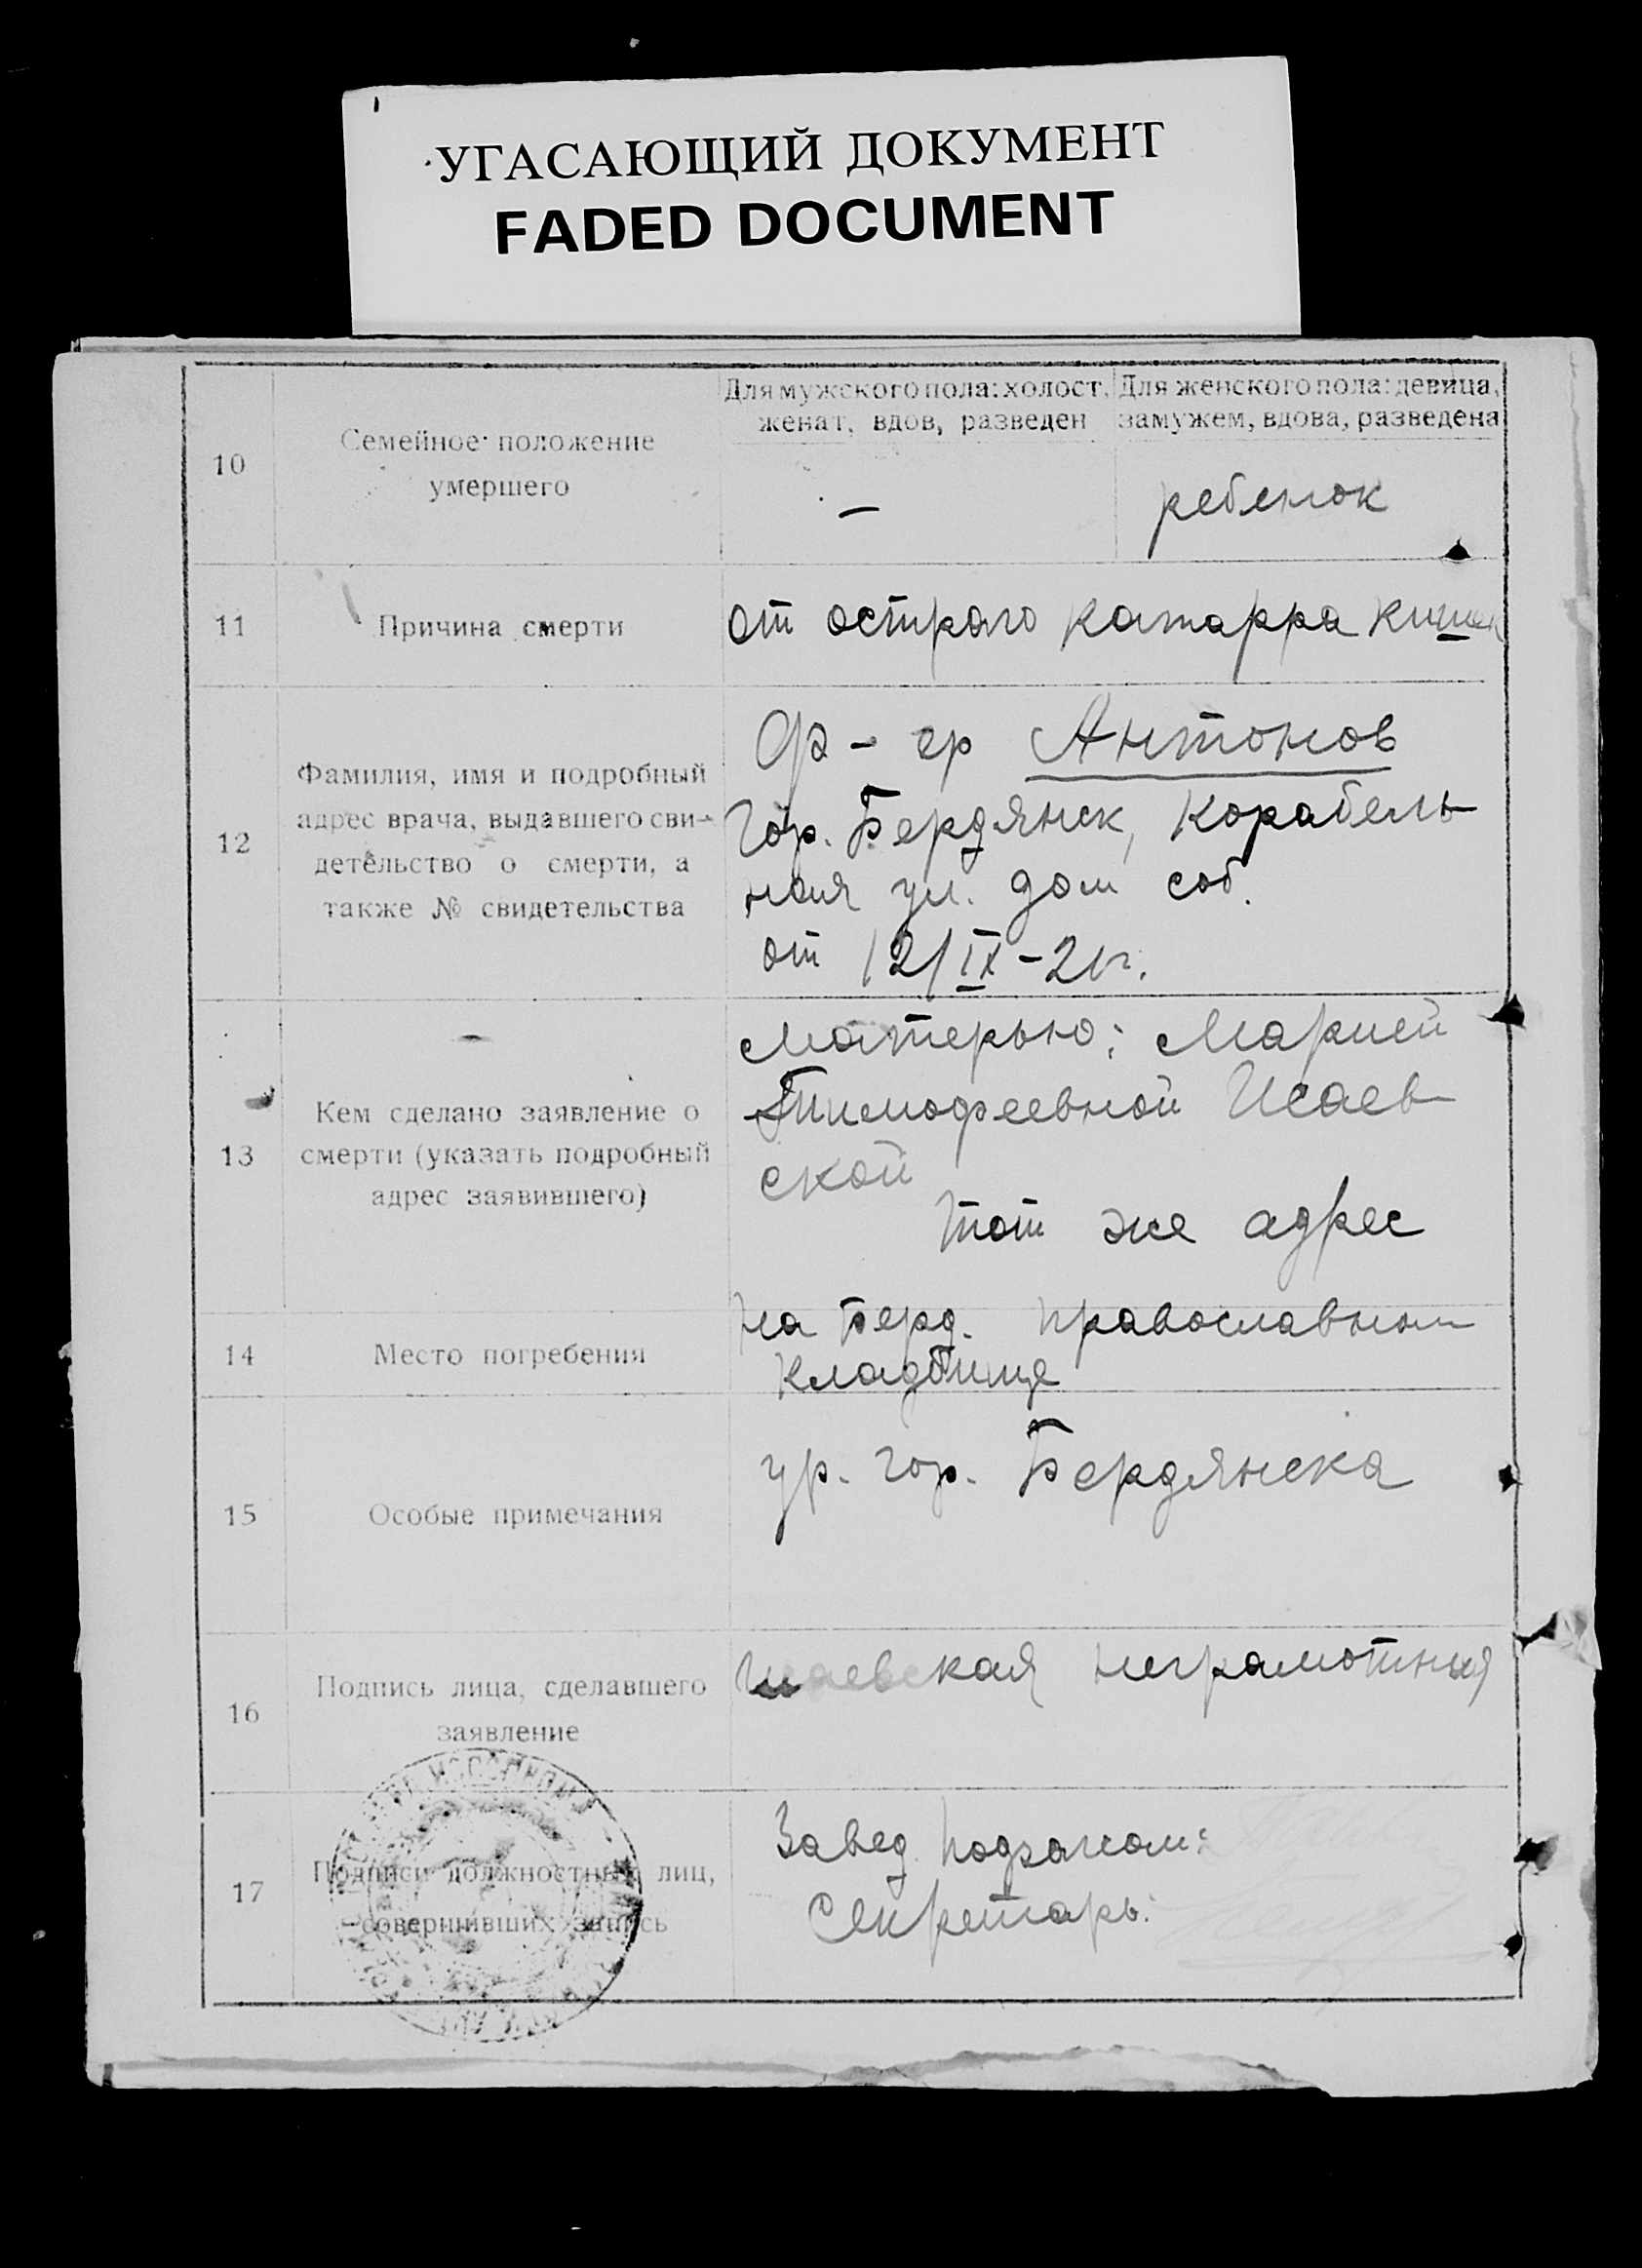 УГАСАЮЩИЙ ДОКУМЕНТ
FADED DOCUMENT
10
Семейное положение
умершего
Для мужского пола: холост,
женат, вдов, разведен
Для женского пола: девица,
замужем, вдова, разведена
—
ребенок
11
Причина смерти
от острого катарра кишек
12
Фамилия, имя и подробный
адрес врача, выдавшего сви-
детельство о смерти, а
также № свидетельства
Антонов
Гор. Бердянск, Корабель
ная ул. дом соб.
от 12/IX-21г.
13
Кем сделано заявление о
смерти (указать подробный
адрес заявившего)
Матерью: Марией
Тимофеевной Исаев
ской
тот же адрес
14
Место погребения
на Берд. православном
кладбище
15
Особые примечания
ур. гор. Бердянска
16
Подпись лица, сделавшего
заявление
Исаевская неграмотная
17
Подписи должностных лиц,
совершивших запись
Завед. подзагсом:
Секретарь: